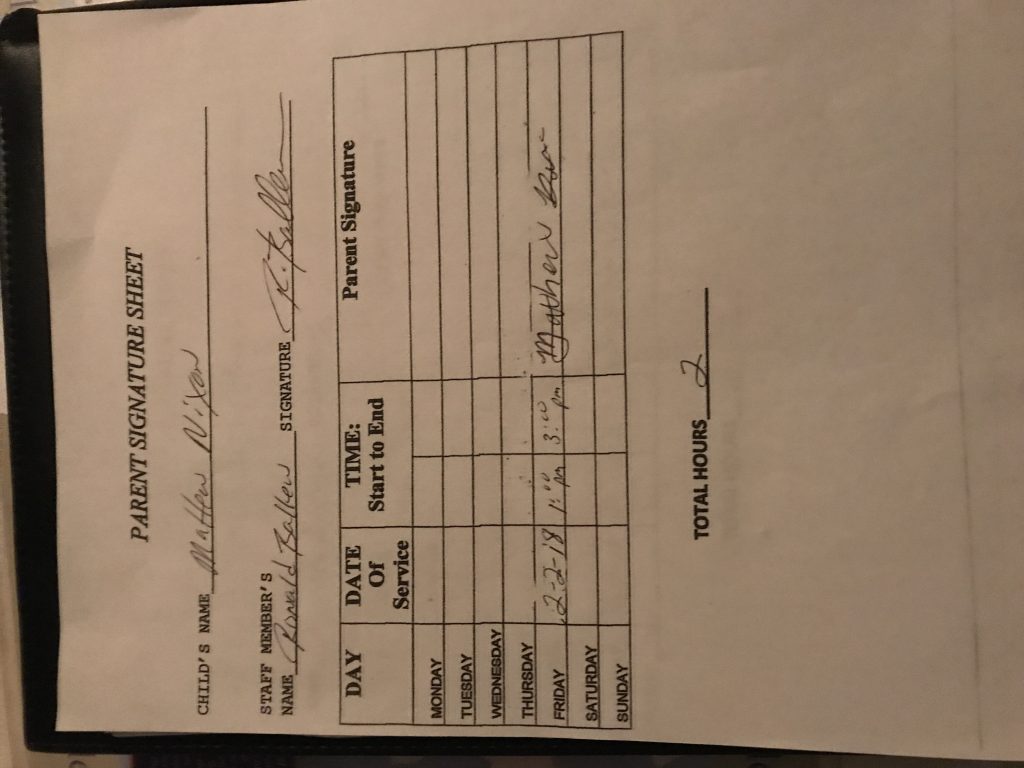 PARENT SIGNATURE SHEET
CHILD'S NAME Matthew Nixon
STAFF MEMBER'S
NAME Ronald Ballew SIGNATURE R. Ballew
DAY DATE Of Service TIME: Start to End Parent Signature
MONDAY
TUESDAY
WEDNESDAY
THURSDAY
FRIDAY 2-2-18 1:00 pm 3:00 pm Matthew
SATURDAY
SUNDAY
TOTAL HOURS 2